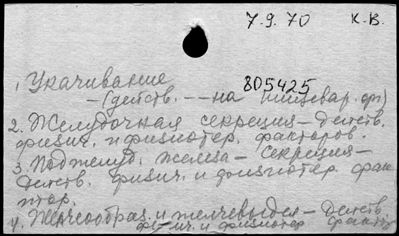 7.9.70 К.В.
1. Укачивание 805425
–(действ. –– на пищевар. фр)
2. Желудочная секреция – Действ.
физич. и физиотер. факторов.
3. Поджелуд. железа – секреция –
Действ. физич. и физиотер. фак
тор.
4. Желчеобраз. и желчевыдел – Действ.
физич. и физиотер факт